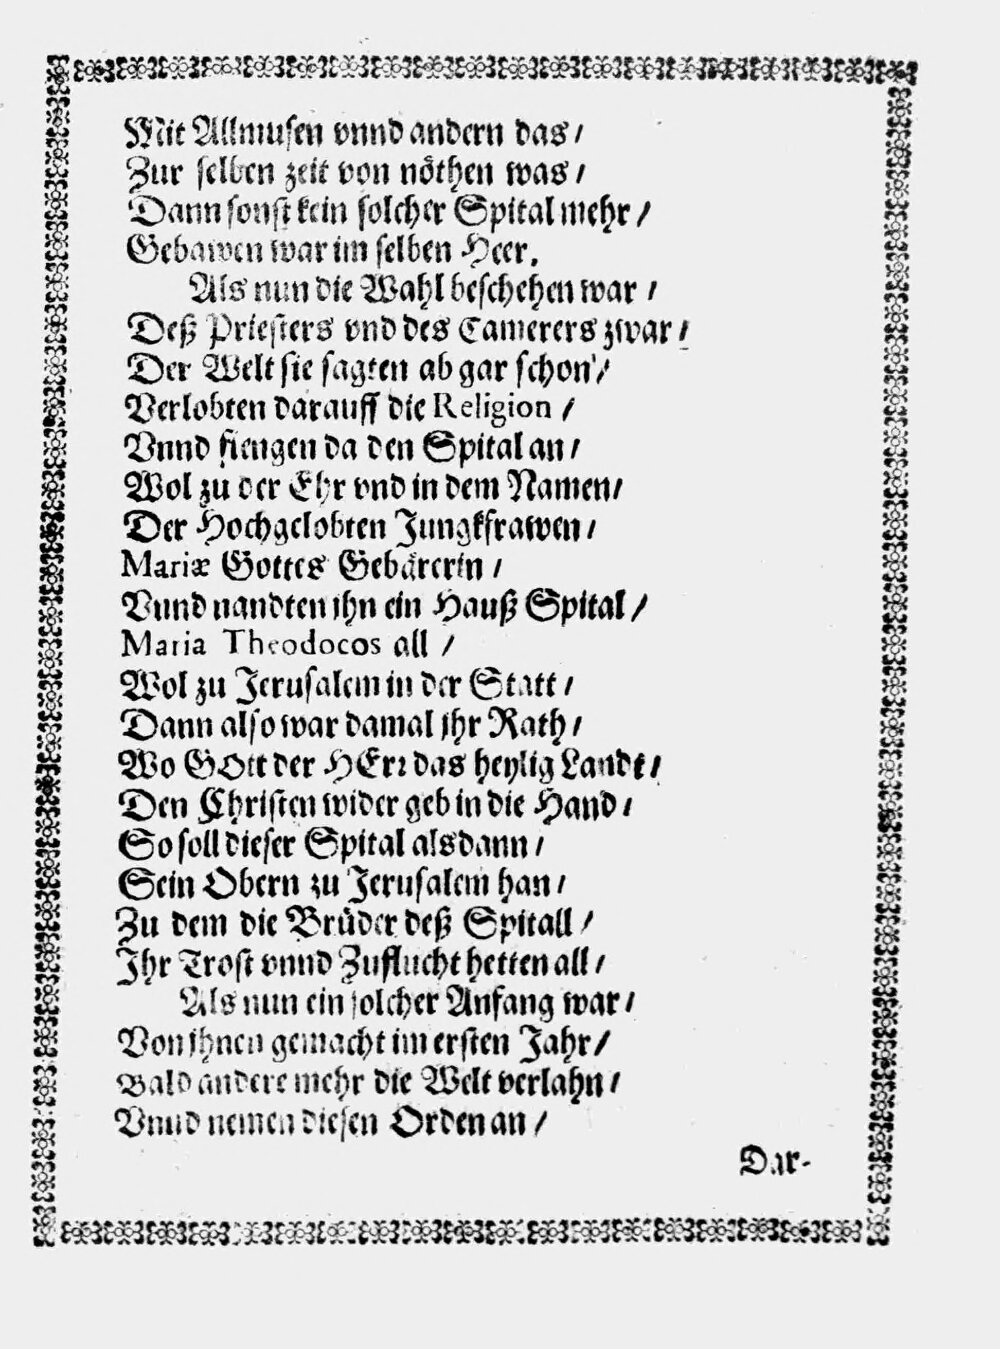 Mit Allmusen vnnd andern das /
Zur selben zeit von nöthen was /
Dann sonst kein solcher Spital mehr /
Gebawen war im selben Heer.
Als nun die Wahl beschehen war /
Deß Priesters vnd des Camerers zwar /
Der Welt sie sagten ab gar schon /
Verlobten darauff die Religion /
Vnnd fiengen da den Spital an /
Wol zu der Ehr vnd in dem Namen /
Der Hochgelobten Jungkfrawen /
Mariæ Gottes Gebärerin /
Vnnd nandten jhn ein Hauß Spital /
Maria Theodocos all /
Wol zu Jerusalem in der Statt /
Dann also war damal jhr Rath /
Wo GOtt der HErr das heylig Landt /
Den Christen wider geb in die Hand /
So soll dieser Spital alsdann /
Sein Obern zu Jerusalem han /
Zu dem die Brüder deß Spitall /
Ihr Trost vnnd Zuflucht hetten all /
Als nun ein solcher Anfang war /
Von jhnen gemacht im ersten Jahr /
Bald andere mehr die Welt verlahn /
Vnnd nemen diesen Orden an /
Dar-